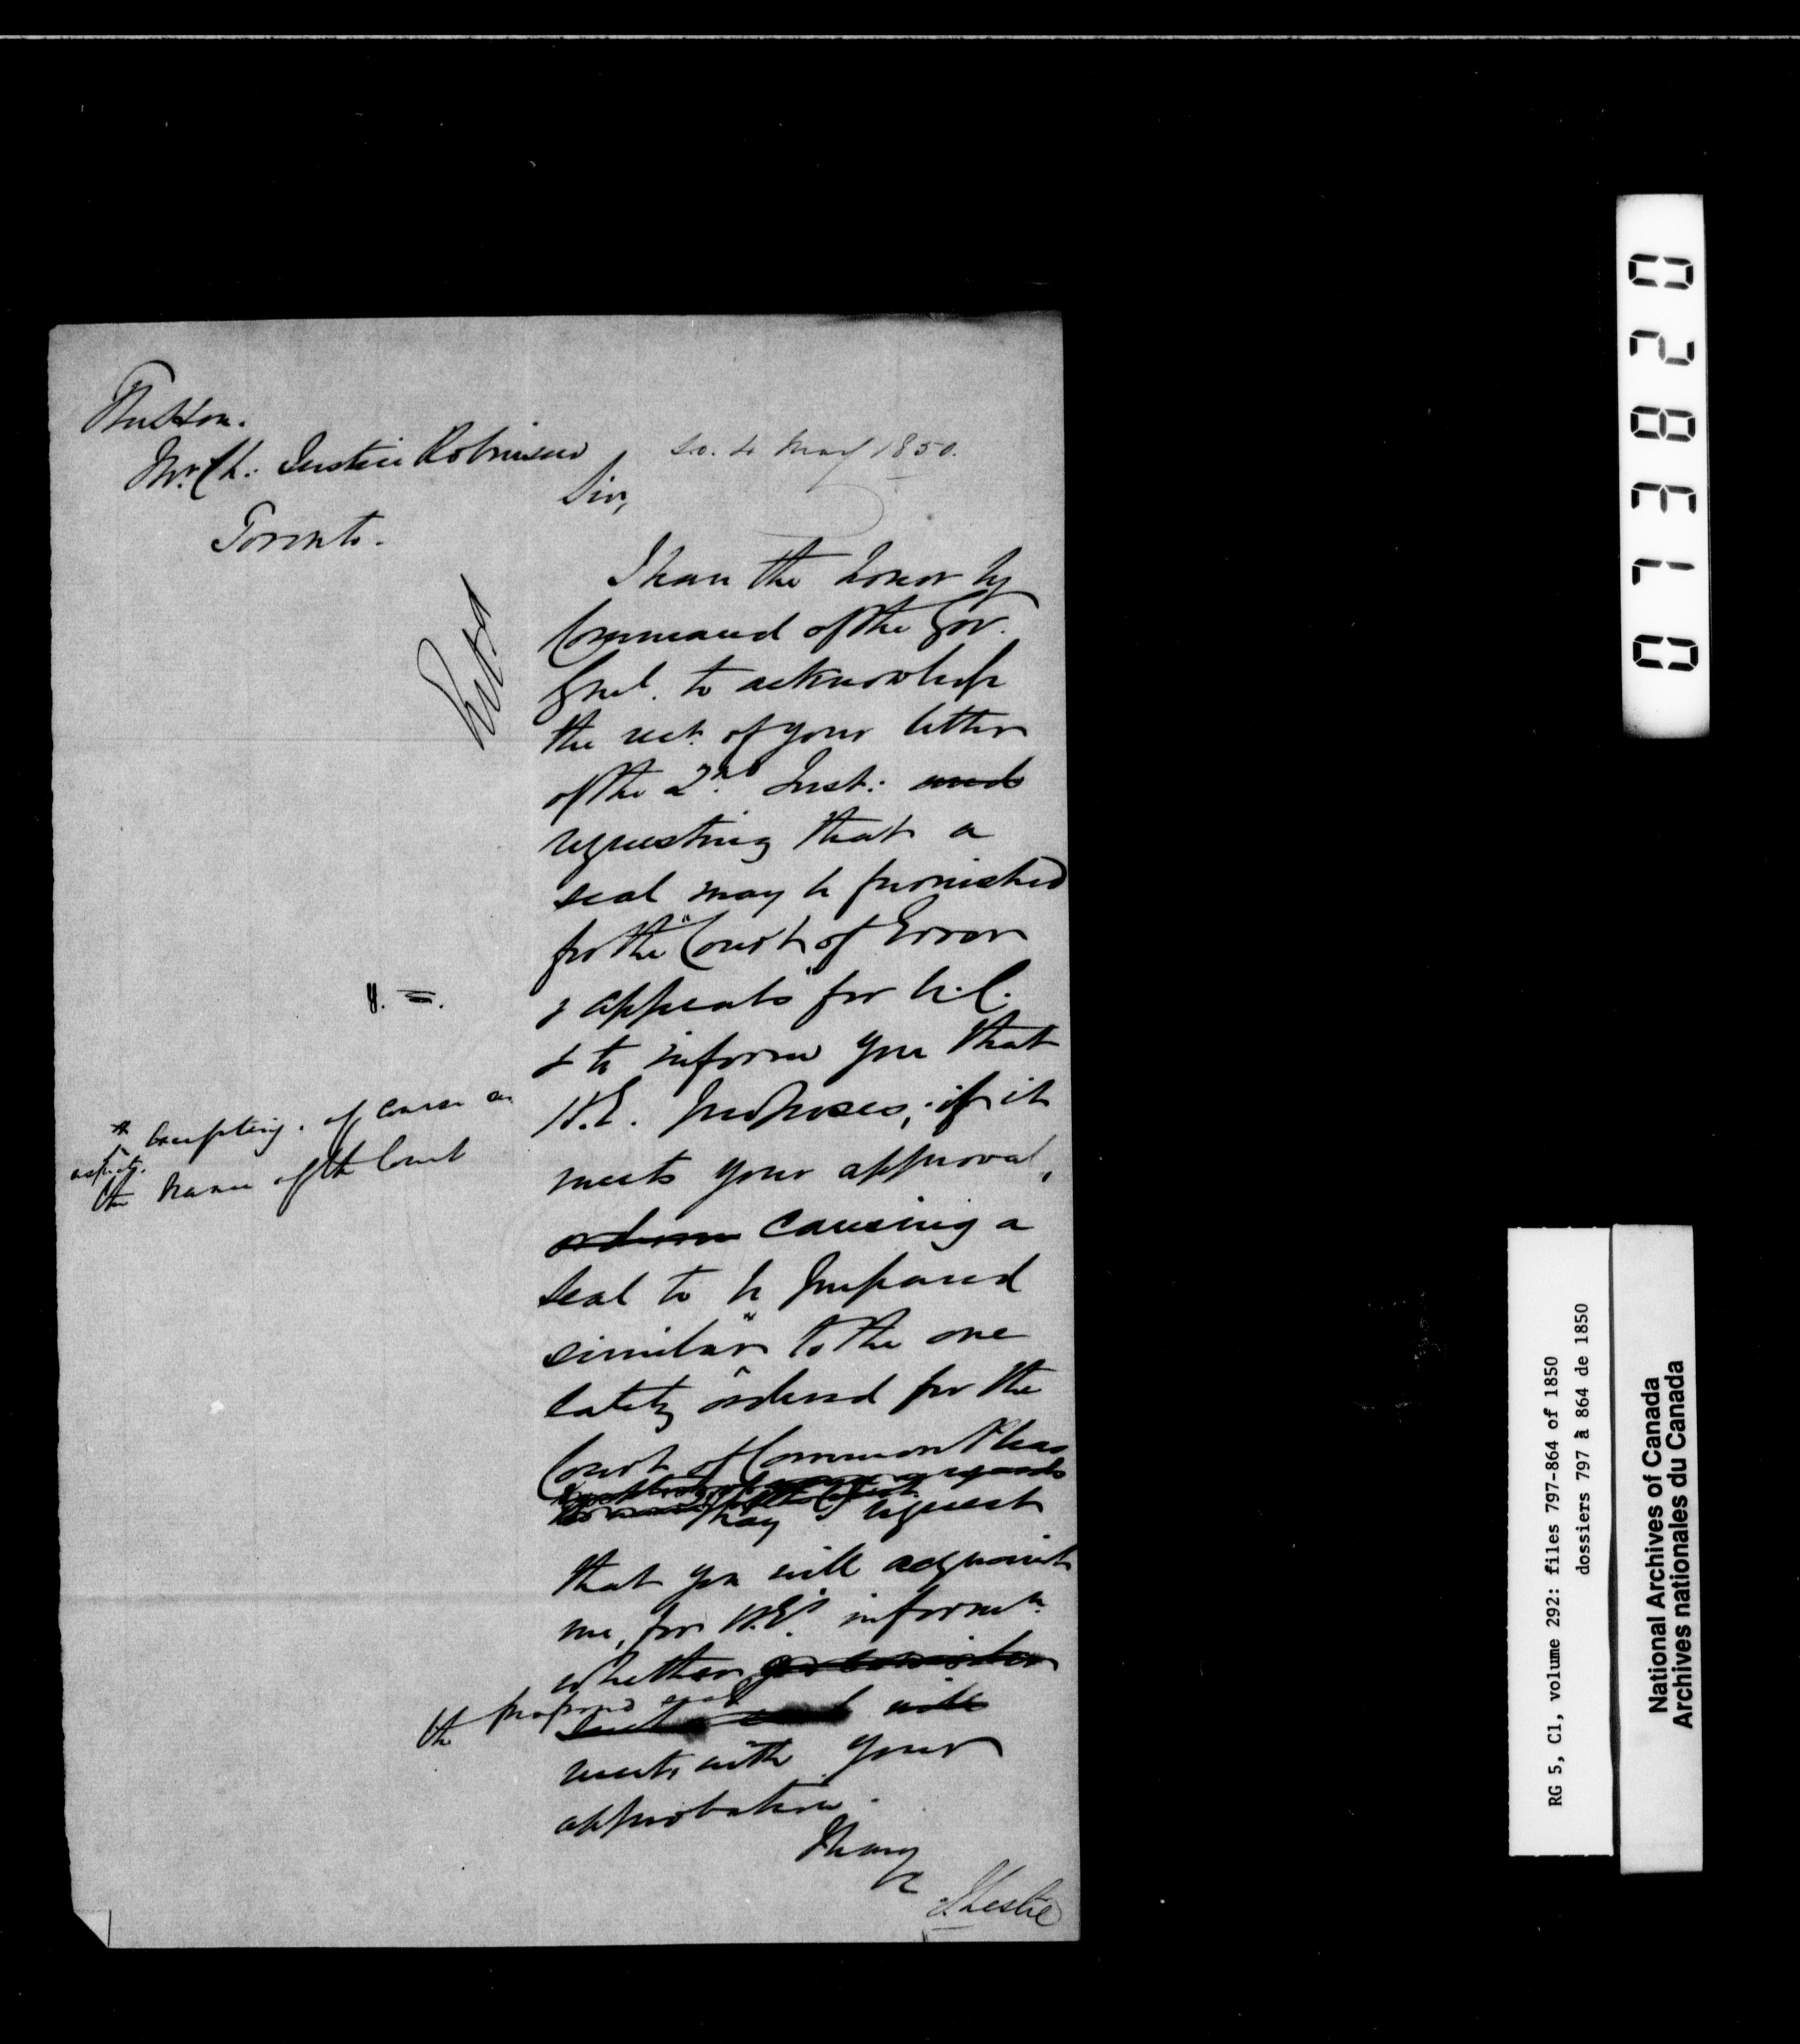 The Hon.
Mr. Ch: Justice Robinson
Toronto.
4 May 1850.
Sir,
I have the honor by
Command of the Gov.
Gnl. to acknowledge
the rect. of your letter
of the 2nd Inst: and
requesting that a
seal may be furnished
for the "Court of Error
& appeals" for U.C.
& to inform you that
H.E. proposes, if it
meets your approval,
causing a
seal to be prepared
similar to the one
lately ordered for the
Court of Common Pleas
* Excepting of course as
respects
the name of the Court
as regards
the name of the Court
may I request
that you will acquaint
me, for H.E's informn.
whether
the proposed seal
such a seal will
meets with your
approbation.
I have
&c
J Leslie
073820
RG 5, C1, volume 292: files 797-864 of 1850
dossiers 797 à 864 de 1850
National Archives of Canada
Archives nationales du Canada